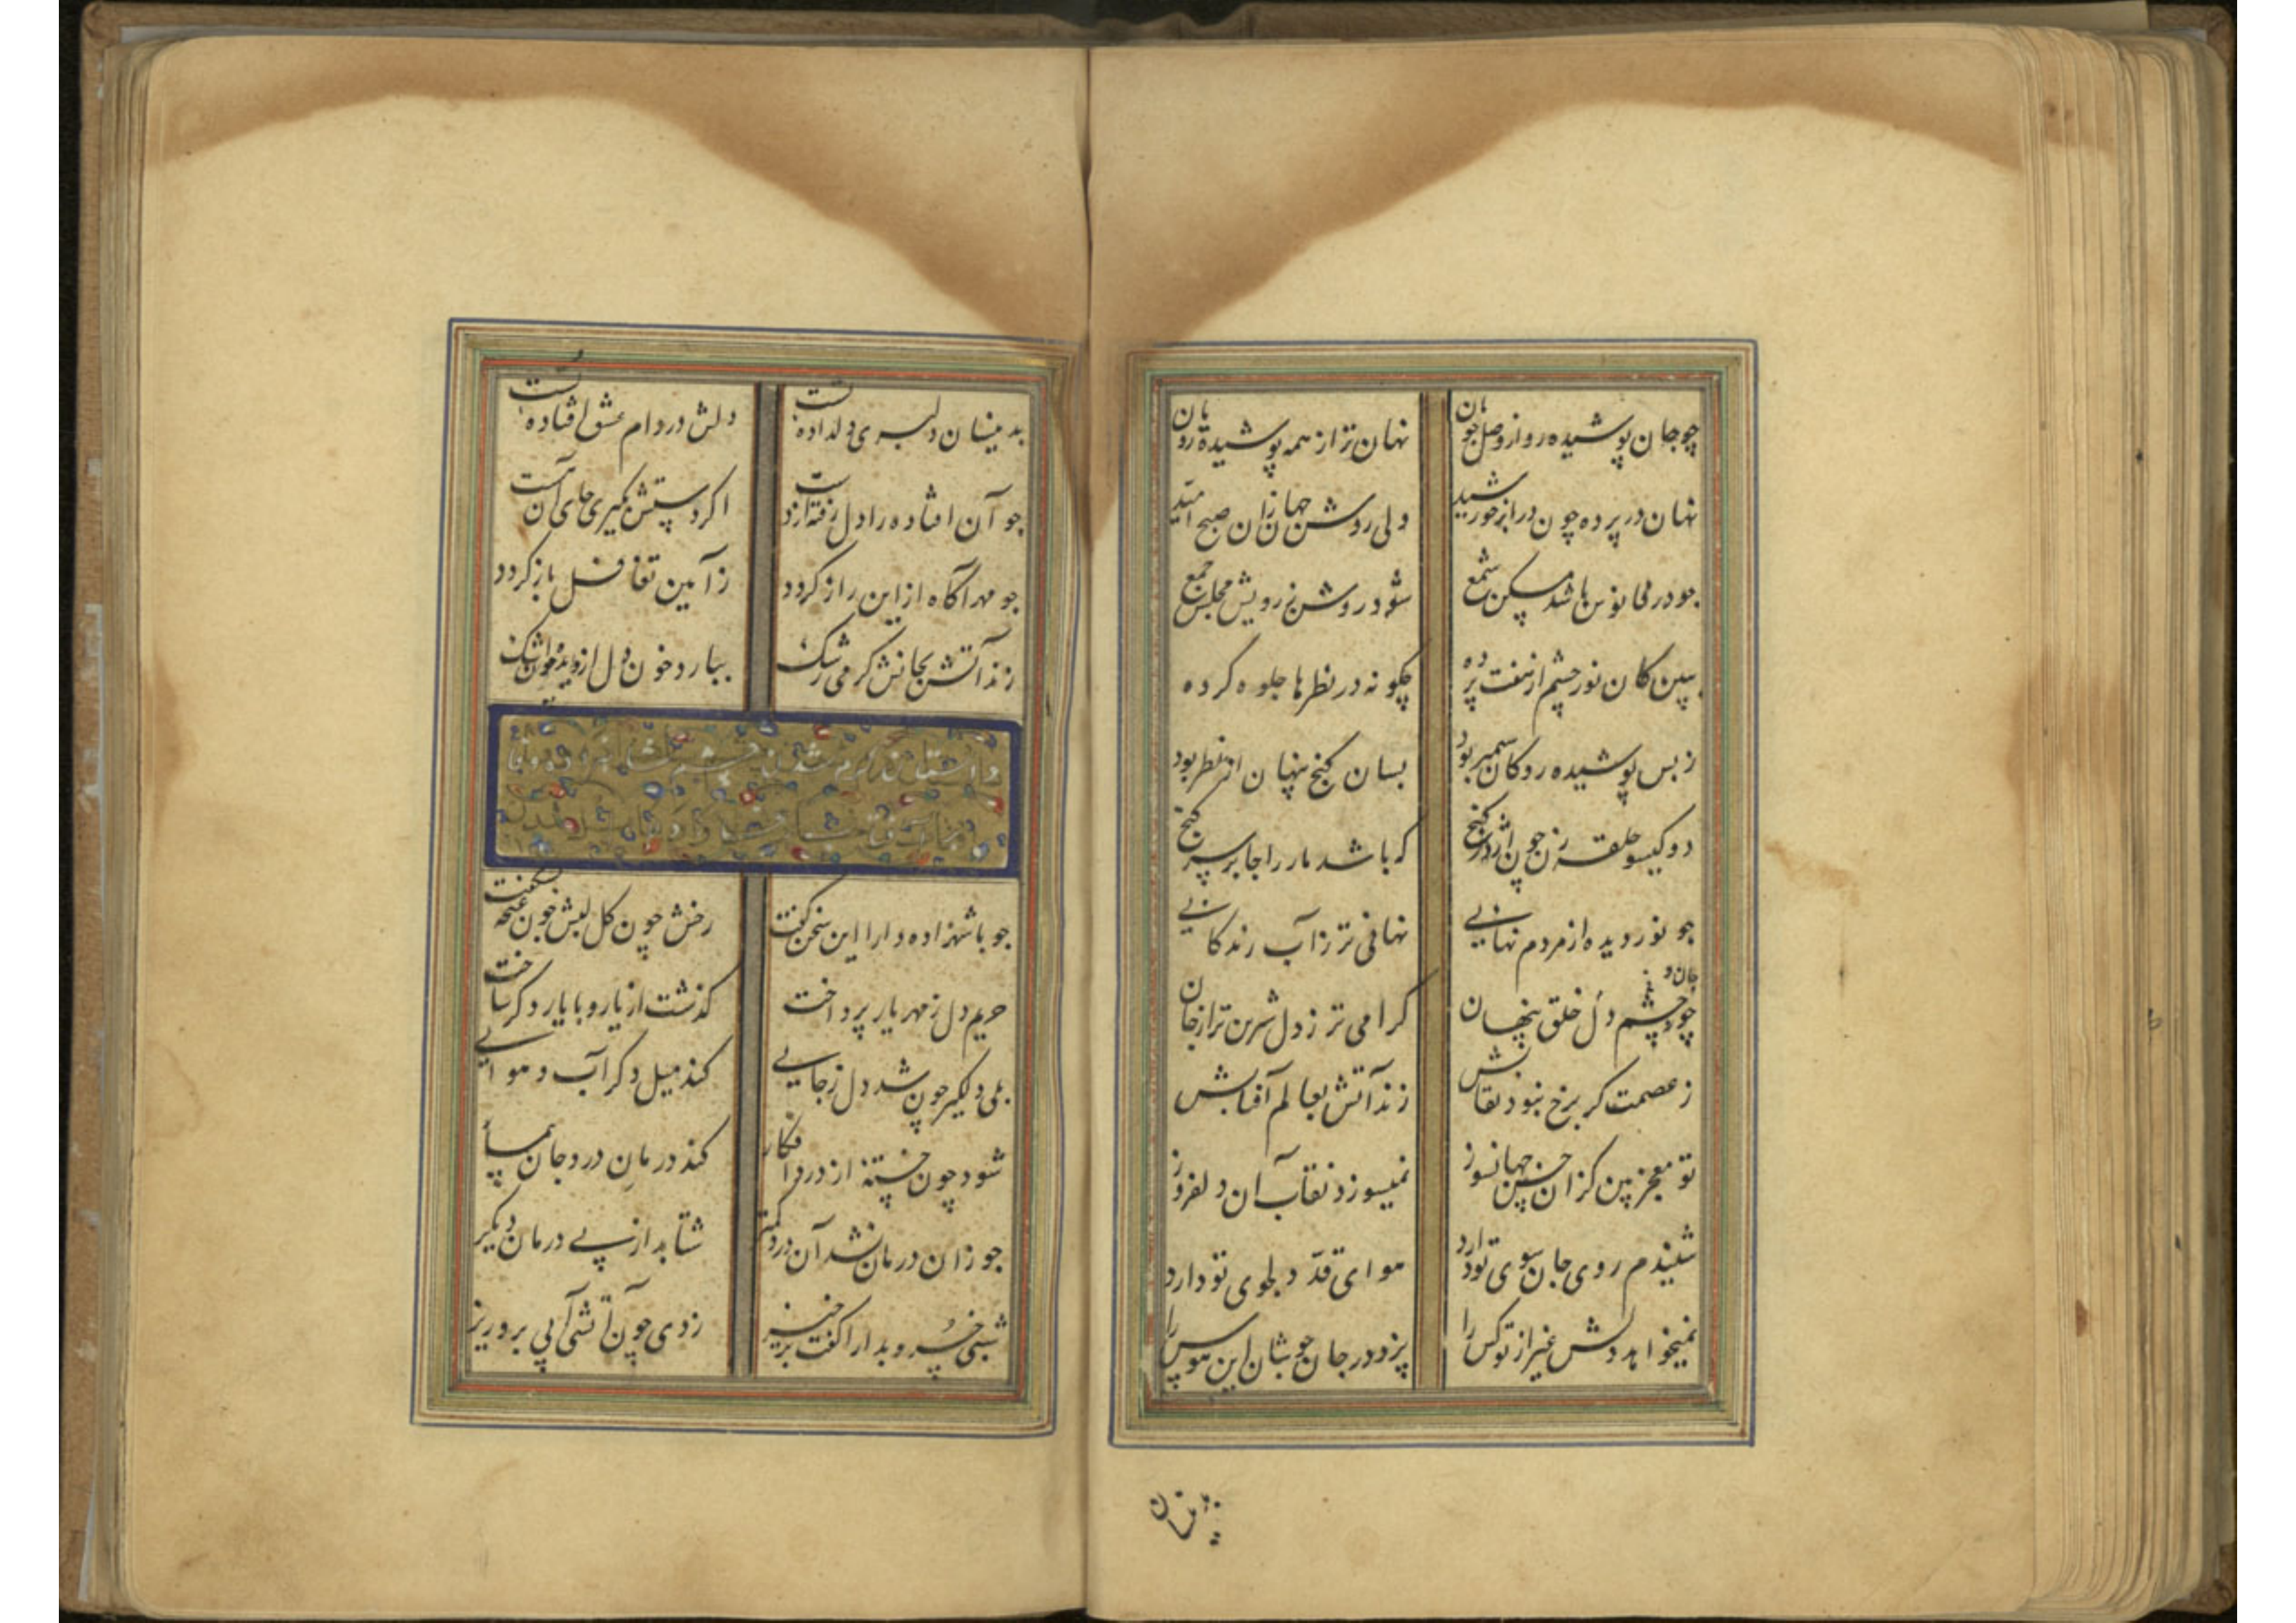 چو جان پوشیده رو از وصل جویان نهان تر از همه پوشیده رویان
نهان در پرده چون در ابر خورشید ولی روشن جهان زان صبح امید
جو در فانوس باشد مسکن شمع شود روشن ز رویش مجلس جمع
ببین کان نور چشم از هفت پرده چکونه در نظرها جلوه کرده
ز بس پوشیده رو کان سیمبر بود بسان کنج پنهان از نظر بود
دو کیسو حلقه زن چون اژدر کنج که باشد مار را جا بر سر کنج
جو نور دیده از مردم نهانیی نهانی تر ز آب زندکانیی
چو چشم و دل خلق پنهان کرامی تر ز دل شیرین تر از جان
ز عصمت کر برخ نبود نقابش زند آتش بعالم آفتابش
تو معجز بین کزان حسن جهانسوز نمیسوزد نقاب آن دلفروز
شنیدم روی جان سوی تو دارد هوای قد دلجوی تو دارد
نمیخواهد دلش غیر از تو کس را پزد در جان جو بیتان این هوس را
بدینسان
بدینسان دلبری دلداده تست دلش در دام عشق افتاده تست
جو آن افتاده را دل رفته از دست اکر دستش بکیری جای آنست
جو مهر آکاه از این راز کردد ز آیین تغافل باز کردد
زند آتش بجانش کرمی رشک ببارد خون دل از دیده چون اشک
داستان
جو با شهزاده دارا این سخن کفت رخش چون کل لبش چون غنچه بشکفت
حریم دل ز مهر یار پرداخت کذشت از یار و با یار دکر ساخت
بلی دلکیر چون شد دل ز جایی کند میل دکر آب و هوایی
شود چون خسته از درد افکار کند درمان درد جان
جو زان درمان نشد آن درد کمتر شتابد از پی درمان دیکر
شبی خسرو بدارا کفت برخیز ز دی چون آتشی آبی برو ریز